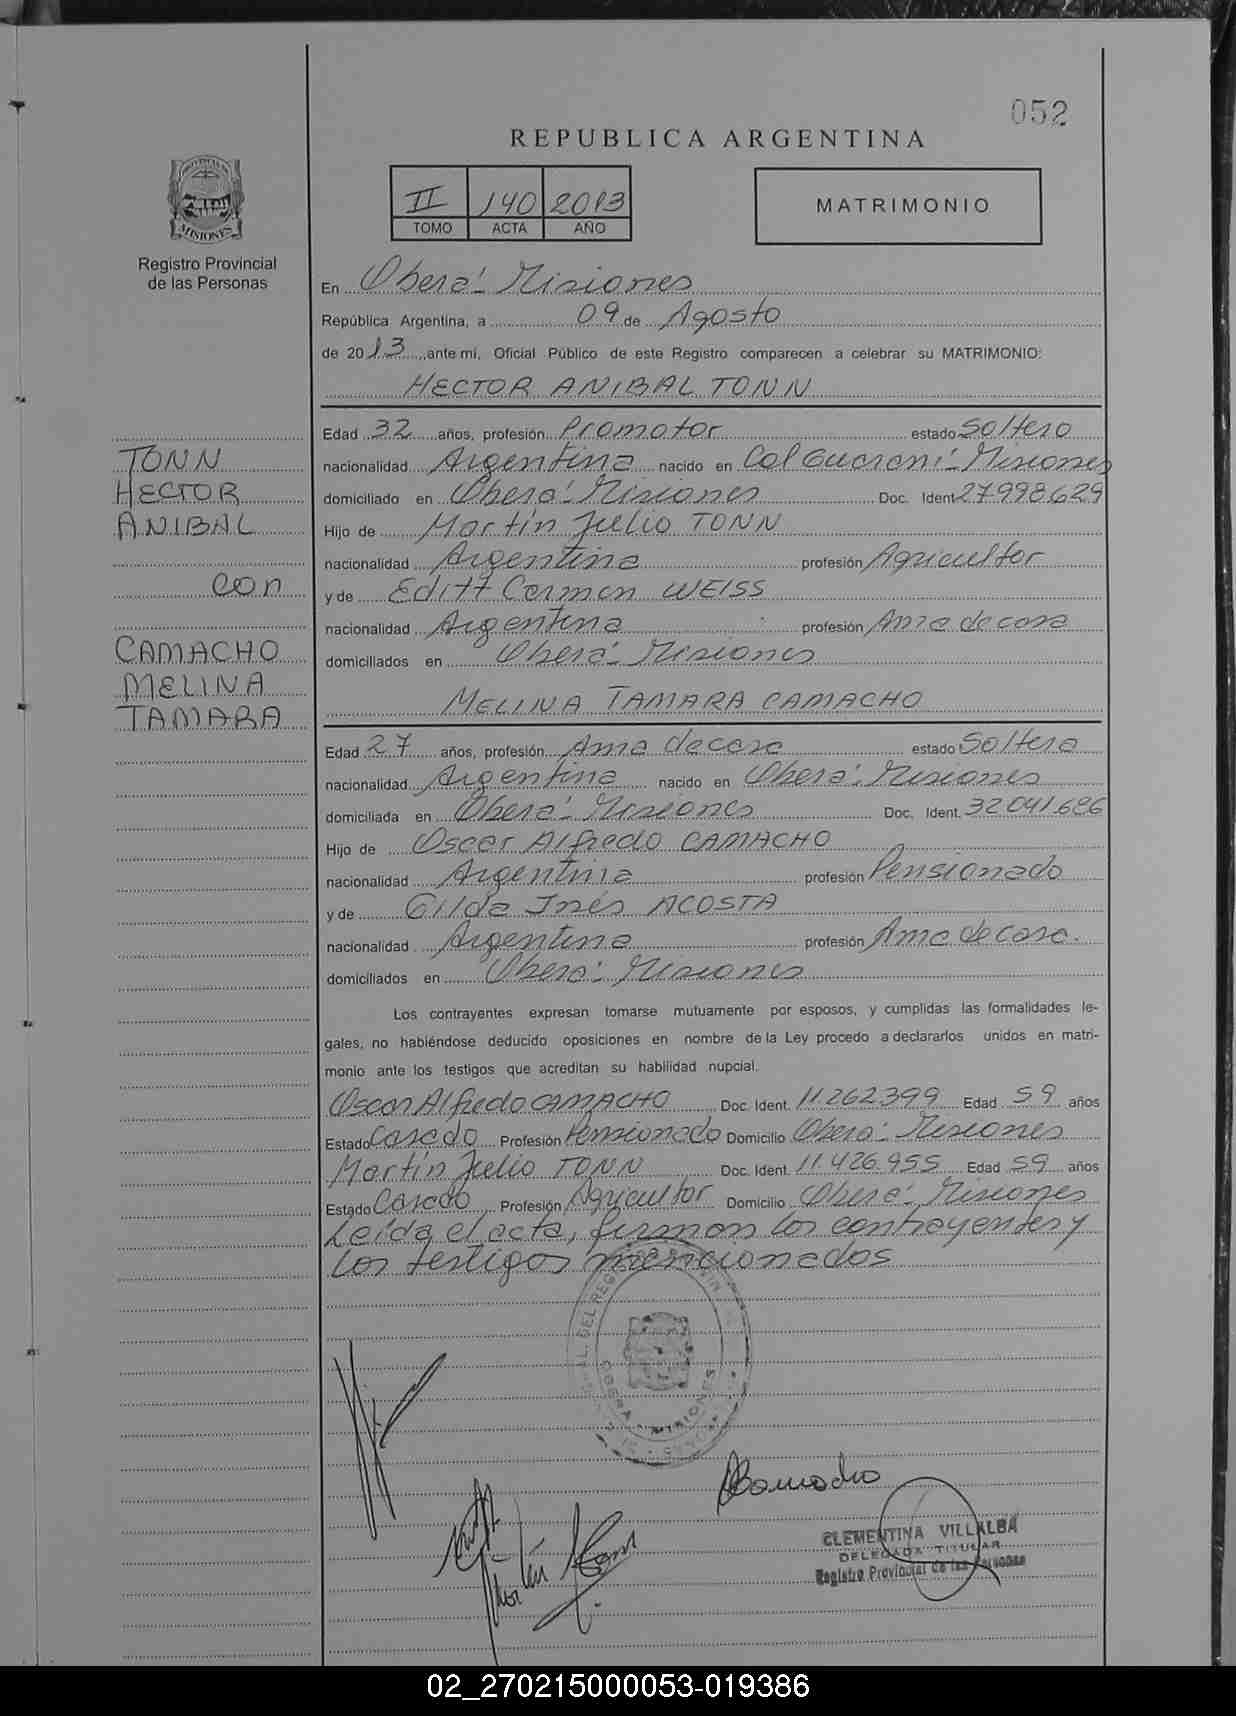 052
REPUBLICA ARGENTINA
II 140 2013
TOMO ACTA AÑO
MATRIMONIO
PROVINCIA DE
MISIONES
Registro Provincial
de las Personas
En Oberá - Misiones
República Argentina, a 09 de Agosto
de 2013, ante mí, Oficial Público de este Registro comparecen a celebrar su MATRIMONIO:
HECTOR ANIBAL TONN
TONN
HECTOR
ANIBAL
con
CAMACHO
MELINA
TAMARA
Edad 32 años, profesión Promotor estado Soltero
nacionalidad Argentina nacido en Col Guaraní - Misiones
domiciliado en Oberá - Misiones Doc. Ident 27.998.629
Hijo de Martín Julio TONN
nacionalidad Argentina profesión Agricultor
y de Editt Carmen WEISS
nacionalidad Argentina profesión Ama de casa
domiciliados en Oberá - Misiones
MELINA TAMARA CAMACHO
Edad 27 años, profesión Ama de casa estado Soltera
nacionalidad Argentina nacido en Oberá - Misiones
domiciliada en Oberá - Misiones Doc. Ident. 32.041.686
Hijo de Oscar Alfredo CAMACHO
nacionalidad Argentina profesión Pensionado
y de Gilda Inés ACOSTA
nacionalidad Argentina profesión Ama de casa.
domiciliados en Oberá - Misiones
Los contrayentes expresan tomarse mutuamente por esposos, y cumplidas las formalidades le-
gales, no habiéndose deducido oposiciones en nombre de la Ley procedo a declararlos unidos en matri-
monio ante los testigos que acreditan su habilidad nupcial.
Oscar Alfredo CAMACHO Doc. Ident. 11.262.399 Edad 59 años
Estado Casado Profesión Pensionado Domicilio Oberá - Misiones
Martín Julio TONN Doc. Ident. 11.426.955 Edad 59 años
Estado Casado Profesión Agricultor Domicilio Oberá - Misiones
Leída el acta, firman los contrayentes y
los testigos mencionados
OBERA MISIONES
CLEMENTINA VILLALBA
DELEGADA TITULAR
Registro Provincial de las Personas
02_270215000053-019386